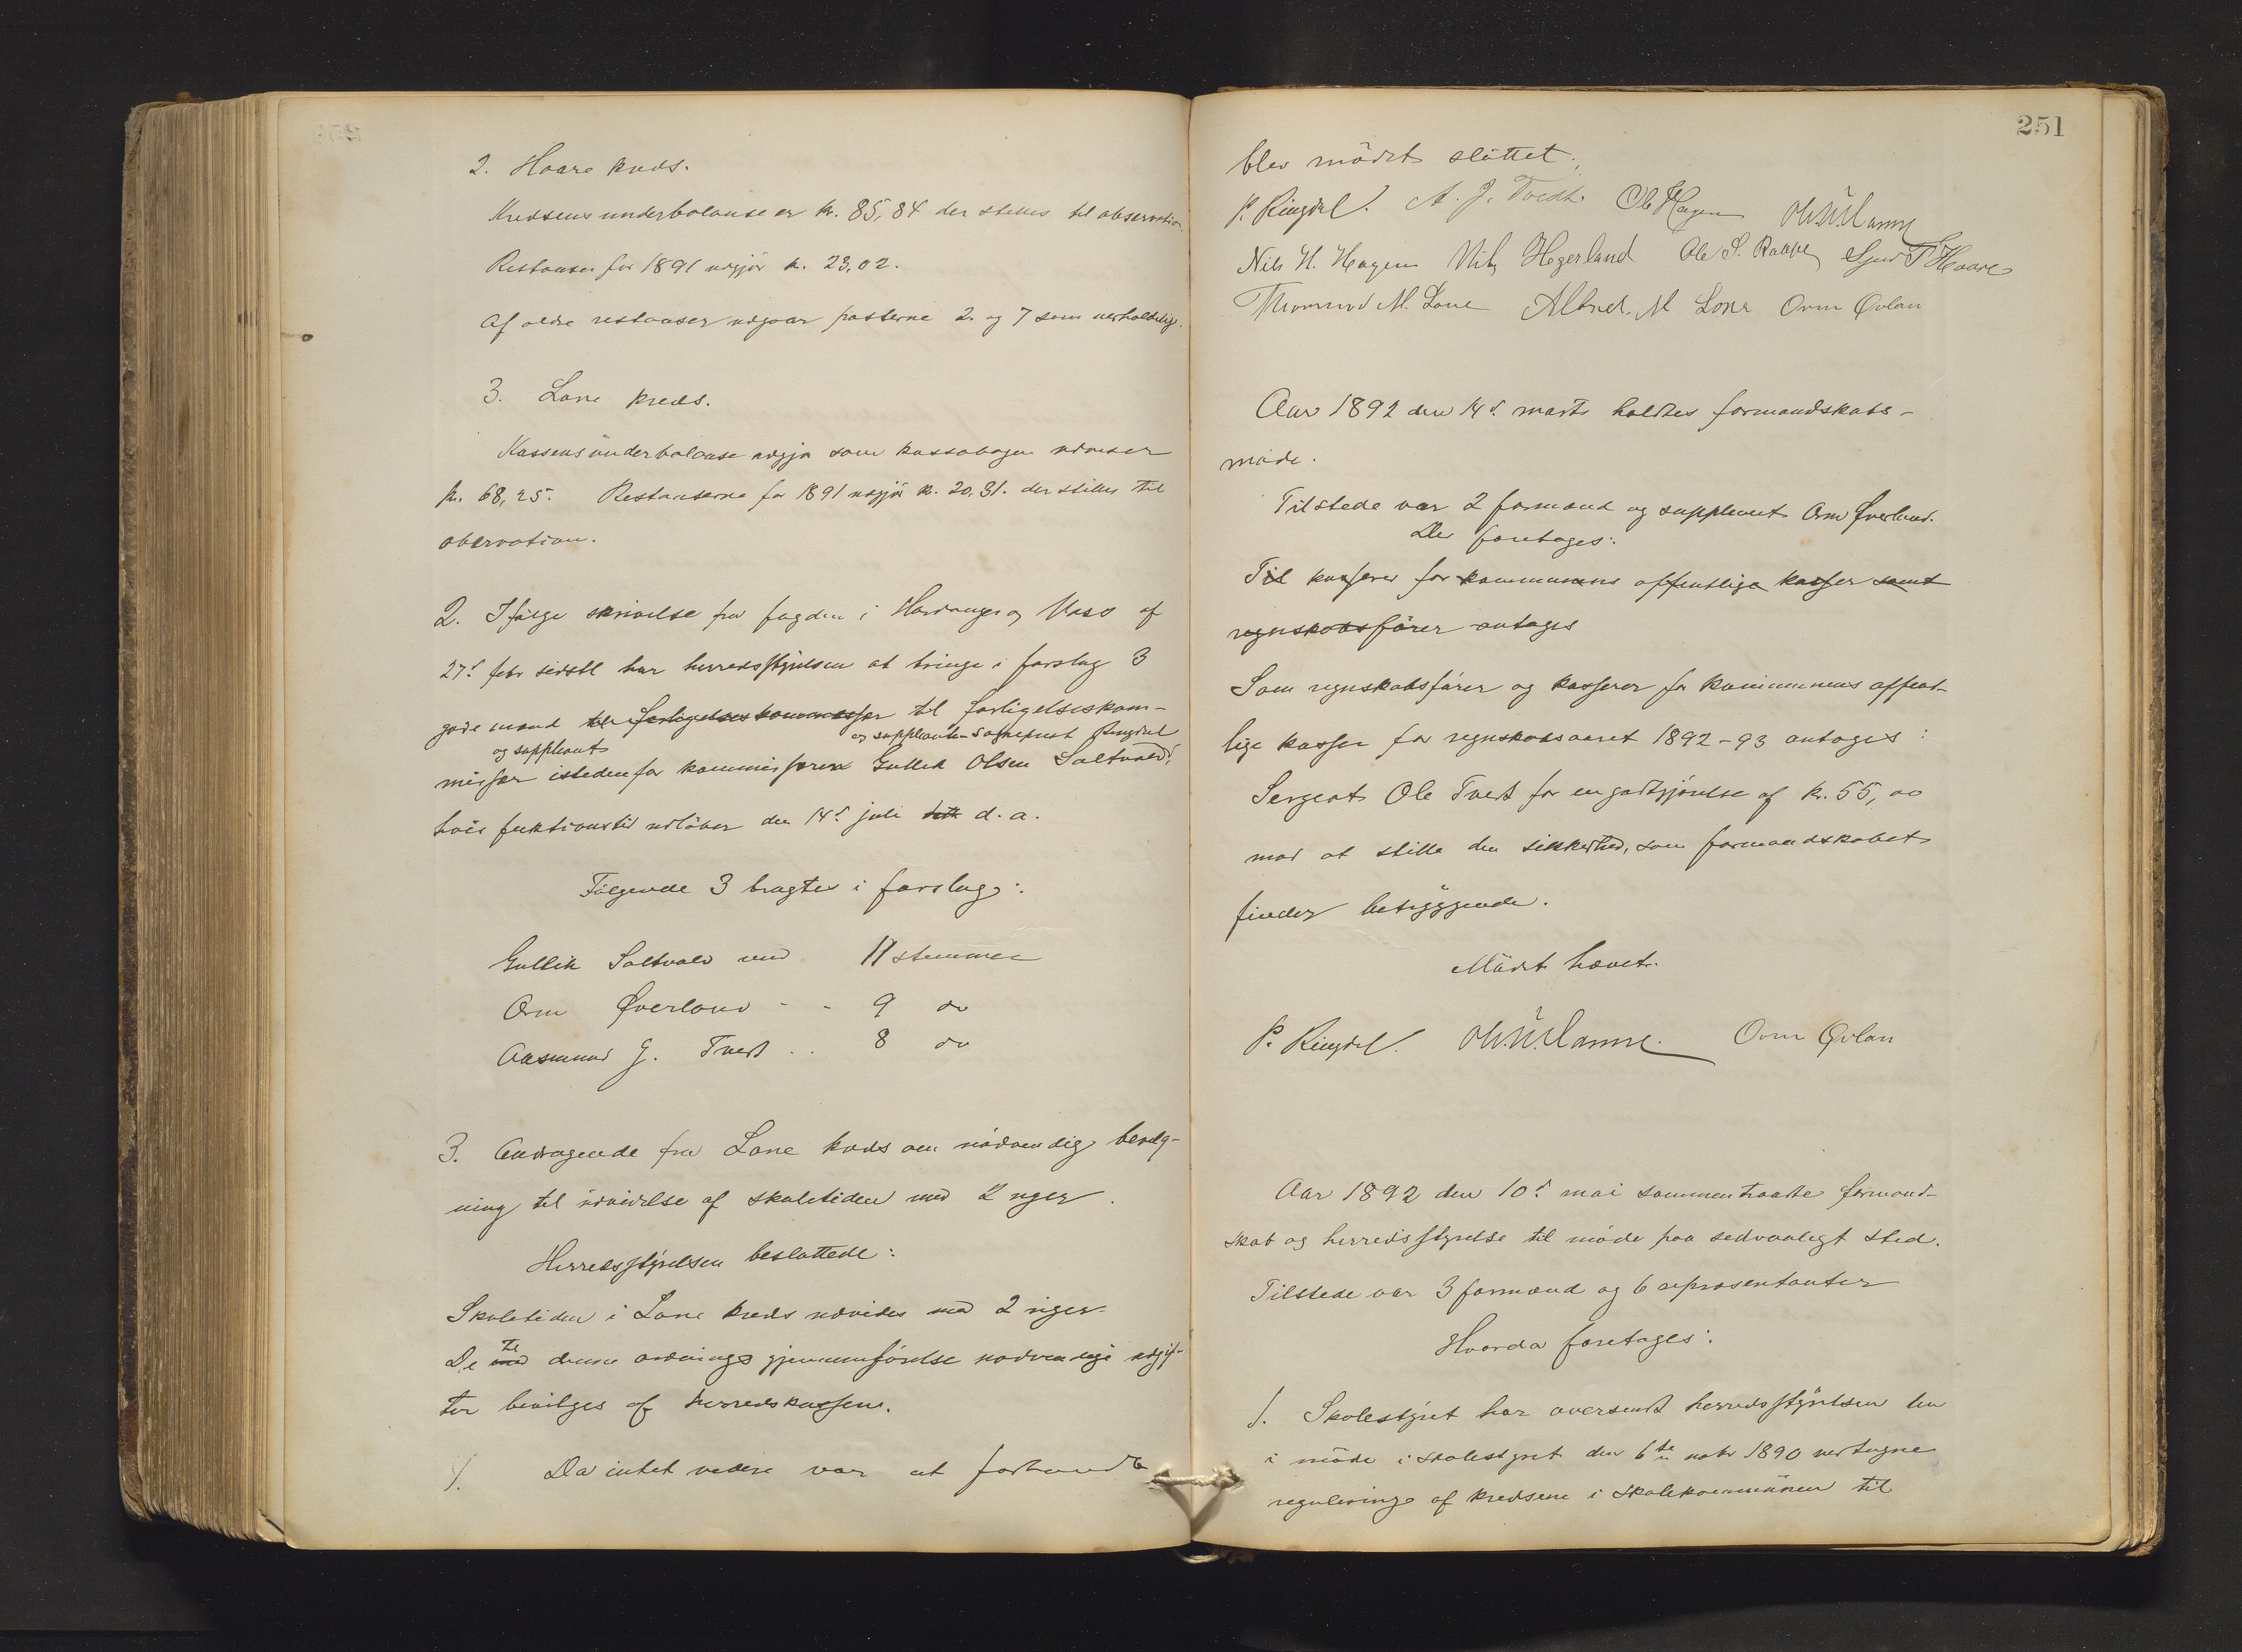 2. Haare kreds.
Kredsens underbalanse er kr. 85,84 der stilles til observation.
Restanser for 1891 udgjør kr. 23,02.
Af ældre restanser udgaar posterne 2. og 7 som uerholdelig.
3. Lone kreds.
Kassens underbalanse udgjør som kassabogen udviser
kr. 68,25. Restanserne for 1891 udgjør kr. 20,31. der stilles til
observation.
2. Ifølge skrivelse fra fogden i Hardanger og Voss af
27d febr sidstl har herredsstyrelsen at bringe i forslag 3
gode mænd til forligelseskommissær til forligelseskom-
og suppleant og suppleant - sogneprest Ringdal
missær istedenfor kommissæren Gullik Olsen Saltvold,
hvis funktionstid udløber den 14d juli d. a.
Følgende 3 bragtes i forslag:
Gullik Saltvold med 11 stemmer
Orm Øverland - - 9 do
Aasmund G. Tvedt - - 8 do
3. Andragende fra Lone kreds om nødvendig bevilg-
ning til udvidelse af skoletiden med 2 uger.
Herredsstyrelsen besluttede:
Skoletiden i Lone kreds udvides med 2 uger.
til
De med denne ordnings gjennemførelse nødvendige udgif-
ter bevilges af herredskassen.
Da intet videre var at forhandle
251
blev mødet sluttet.
P. Ringdal. A. J. Tvedt. Ole Hagen
Nils H. Hagen Nils Hegerland Ole S. Rabbe Sjur T Haare
Thormod M. Lone M Lone Orm Øvlan
Aar 1892 den 14d marts holdtes formandskabs-
møde.
Tilstede var 2 formænd og suppleant Orm Øverland.
Der foretoges:
Til kasserer for kommunens offentlige kasser samt
regnskabsfører antages
Som regnskabsfører og kasserer for kommunens offent-
lige kasser for regnskabsaaret 1892-93 antoges:
Sergeant Ole Tvedt for en godtgjørelse af kr. 55,00
mod at stille den sikkerhed, som formandskabet
finder betryggende.
Mødet hævet.
P. Ringdal. Orm Øvlan
Aar 1892 den 10d mai sammentraadte formand-
skab og herredsstyrelse til møde paa sedvanligt sted.
Tilstede var 3 formænd og 6 repræsentanter
Hvorda foretoges:
1. Skolestyret har oversendt herredsstyrelsen en
i møde i skolestyret den 6te nobr 1890 vedtagne
regulering af kredsene i skolekommunen til